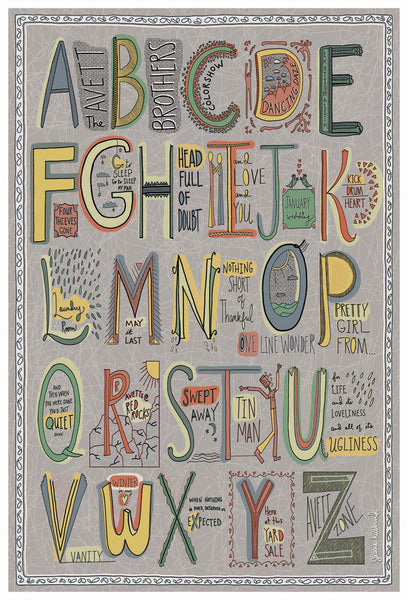 A
The
AVETT
B
BROTHERS
C
COLORSHOW
D
DANCING
E
F
FOUR
THIEVES
GONE
G
Go to
SLEEP
Go to SLEEP
MY MAN
H
HEAD
FULL
OF
DOUBT
I
and
LOVE
and
YOU
J
JANUARY
wedding
K
KICK
DRUM
HEART
L
Laundry
Room
M
MAY
it
LAST
N
NOTHING
SHORT
of
Thankful
O
ONE LINE WONDER
P
PRETTY
GIRL
FROM...
Q
AND
THEN WHEN
YOU WERE DONE
YOU'D JUST
QUIET
DOWN
R
AVETT
at
RED
ROCKS
S
SWEPT
AWAY
T
TIN
MAN
U
for
LIFE
and its
LOVELINESS
and all of its
UGLINESS
V
VANITY
W
WINTER
in my
X
WHEN NOTHING
IS OWED, DESERVED or
EXPECTED
Y
Here
at this
YARD
SALE
Z
AVETT
ZONE